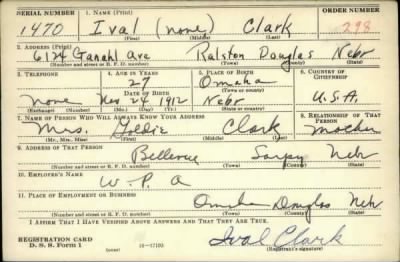 SERIAL NUMBER 1. NAME (Print) ORDER NUMBER
1470 Ival (none) Clark 298
(First) (Middle) (Last)
2. ADDRESS (Print)
6124 Ganahl Ave Ralston Douglas Nebr
(Number and street or R. F. D. number) (Town) (County) (State)
3. TELEPHONE 4. AGE IN YEARS 5. PLACE OF BIRTH 6. COUNTRY OF CITIZENSHIP
27 Omaha
DATE OF BIRTH (Town or county)
none Nov 24 1912 Nebr U.S.A.
(Exchange) (Number) (Mo.) (Day) (Yr.) (State or country)
7. NAME OF PERSON WHO WILL ALWAYS KNOW YOUR ADDRESS 8. RELATIONSHIP OF THAT PERSON
Mrs. Goldie Clark mother
(Mr., Mrs., Miss) (First) (Middle) (Last)
9. ADDRESS OF THAT PERSON
Bellevue Sarpy Nebr
(Number and street or R. F. D. number) (Town) (County) (State)
10. EMPLOYER'S NAME
W.P.A
11. PLACE OF EMPLOYMENT OR BUSINESS
Omaha Douglas Nebr.
(Number and street or R. F. D. number) (Town) (County) (State)
I AFFIRM THAT I HAVE VERIFIED ABOVE ANSWERS AND THAT THEY ARE TRUE.
REGISTRATION CARD
D. S. S. Form 1 16-17105 Ival Clark
(Registrant's signature)